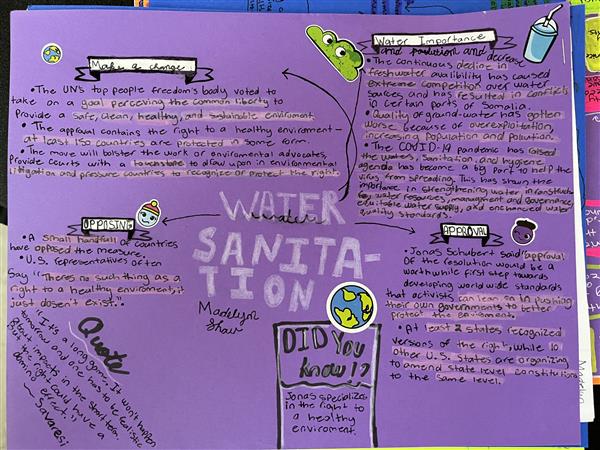 Make a change
• The UN's top people freedom's body voted to
take on a goal perceving the common liberty to
Provide a safe, clean, healthy, and sustainable enviroment
• The approval contains the right to a healthy enviroment -
at least 150 countries are protected in some form.
• The move will bolster the work or enviromental advocates,
Provide courts with a touchstone to draw upon in enviromental
litigation and pressure countries to recognize or protect the right
Water Importance
and pollution and decrease
• The continuous decline in
freshwater avalibility has caused
extreme competitor over water
sources, and has resulted in conflicts
in certain parts of Somalia.
• Quality of ground-water has gotten
worse because of overexploitation,
increasing Population and Polution.
• The COVID-19 pandemic has raised
the waters, Sanitation, and hygiene
agenda has become a big part to help the
virus from spreading. This has shown the
importance in strengthening water
key water resources, managment and governance,
equitable water supply, and enchanced water
quality standards.
OPPOSING
• A small handfull of countries
have opposed the measure,
• U.S. representatives often
Say "There's no such thing as a
right to a healthy enviroment, it
just doesn't exist."
WATER
water
SANITA-
TION
Madelynn
Shaw
APPROVAL
• Jonas Schubert said "approval
of the resolution would be a
worthwhile first step towards
developing worldwide standards
that activists can lean on in pushing
their own governments to better
protect the enviroment.
• At least 2 states recognized
versions of the right, while 10
other U.S. states are organizing
to amend state level constitutions
to the same level.
Quote
"It's a long game. It won't happen
tomorrow and one has to be realistic
about impacts in the short term.
But the right could have a
domino effect."
~ Savaresi
DID YOU
know!?
Jonas specializes
in the right to
a healthy
enviroment.
Madelyn